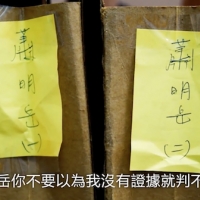 蕭明岳(一)
蕭明岳(二)
岳你不要以為我沒有證據就判不